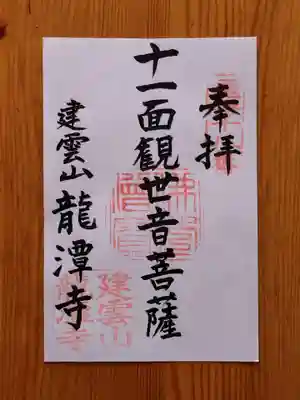 奉拝
十一面観世音菩薩
建雲山龍潭寺
建雲山
龍潭寺